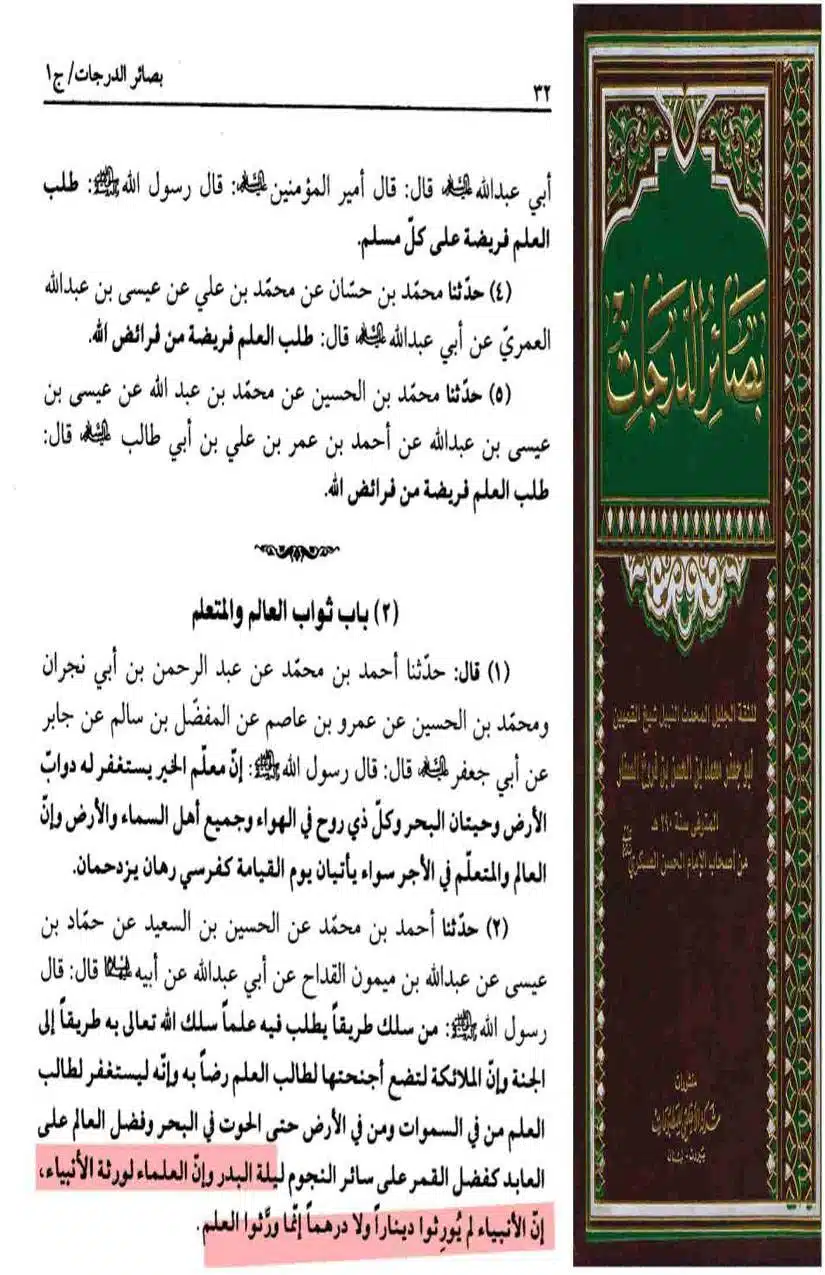 بصائر الدرجات/ ج١
٣٢
أبي عبدالله عليه السلام قال: قال أمير المؤمنين عليه السلام: قال رسول الله صلى الله عليه وآله: طلب
العلم فريضة على كلّ مسلم.
(٤) حدّثنا محمّد بن حسّان عن محمّد بن علي عن عيسى بن عبدالله
العمريّ عن أبي عبدالله عليه السلام قال: طلب العلم فريضة من فرائض الله.
(٥) حدّثنا محمّد بن الحسين عن محمد بن عبد الله عن عيسى بن
عيسى بن عبدالله عن أحمد بن عمر بن علي بن أبي طالب عليه السلام قال:
طلب العلم فريضة من فرائض الله.
(٢) باب ثواب العالم والمتعلم
(١) قال: حدّثنا أحمد بن محمّد عن عبد الرحمن بن أبي نجران
ومحمّد بن الحسين عن عمرو بن عاصم عن المفضّل بن سالم عن جابر
عن أبي جعفر عليه السلام قال: قال رسول الله صلى الله عليه وآله: إنّ معلّم الخير يستغفر له دوابّ
الأرض وحيتان البحر وكلّ ذي روح في الهواء وجميع أهل السماء والأرض وإنّ
العالم والمتعلّم في الأجر سواء يأتيان يوم القيامة كفرسي رهان يزدحمان.
(٢) حدّثنا أحمد بن محمّد عن الحسين بن السعيد عن حمّاد بن
عيسى عن عبدالله بن ميمون القداح عن أبي عبدالله عن أبيه عليهما السلام قال: قال
رسول الله صلى الله عليه وآله: من سلك طريقاً يطلب فيه علماً سلك الله تعالى به طريقاً إلى
الجنة وإنّ الملائكة لتضع أجنحتها لطالب العلم رضاً به وإنّه ليستغفر لطالب
العلم من في السموات ومن في الأرض حتى الحوت في البحر وفضل العالم على
العابد كفضل القمر على سائر النجوم ليلة البدر وإنّ العلماء لورثة الأنبياء،
إنّ الأنبياء لم يُورثوا ديناراً ولا درهماً إنّما ورَّثوا العلم.
بصائر الدرجات
للثقة الجليل المحدث النبيل شيخ القميين
أبو جعفر محمد بن الحسن بن فروخ الصفار
المتوفى سنة ٢٩٠ هـ
من أصحاب الإمام الحسن العسكري
منشورات
بيروت - لبنان